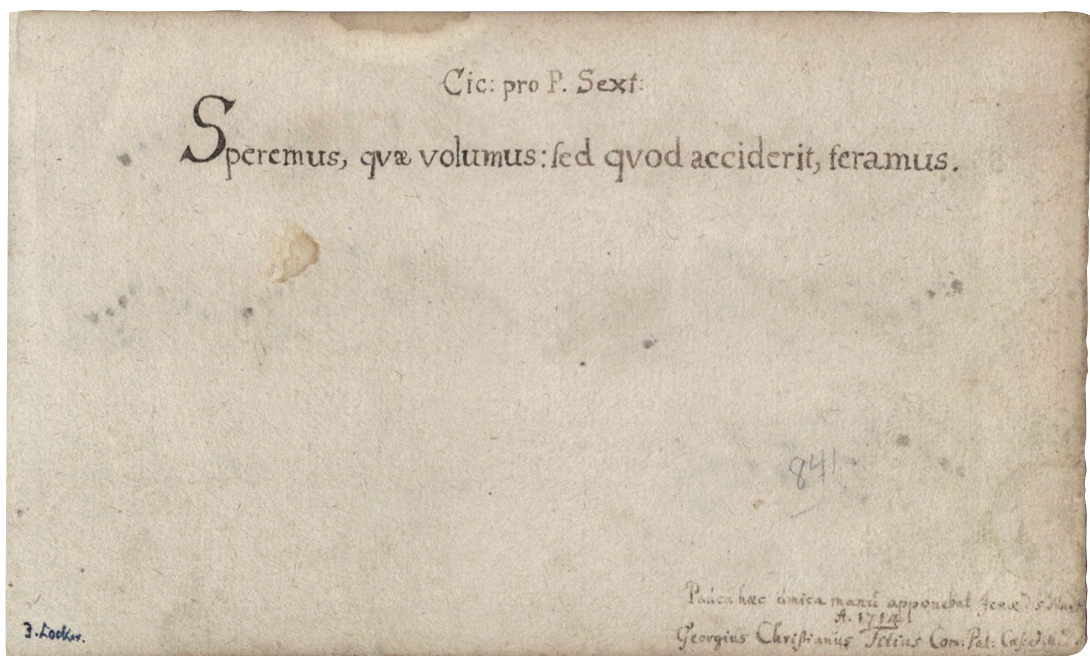 Cic: pro P. Sext:
Speremus, qvæ volumus: sed qvod acciderit, feramus.
841
Pauca hæc amica manu apponebat Jenæ d 5
A. 1714
Georgius Christianus Com: Pal: Cæs:
J. Locker.